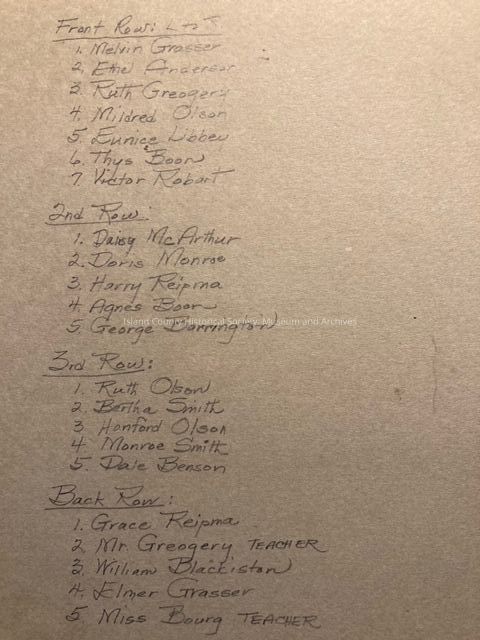 Front Row: L to R
1. Melvin Grasser
2. Ethel Anderson
3. Ruth Greogery
4. Mildred Olson
5. Eunice Libbey
6. Thys Boon
7. Victor Robart
2nd Row:
1. Daisy McArthur
2. Doris Monroe
3. Harry Reipma
4. Agnes Boon
Island County Historical Society, Museum and Archives
5. George Barrington
3rd Row:
1. Ruth Olson
2. Bertha Smith
3 Hanford Olson
4 Monroe Smith
5. Dale Benson
Back Row:
1. Grace Reipma
2. Mr. Greogery TEACHER
3. William Blackiston
4. Elmer Grasser
5. Miss Bourg TEACHER